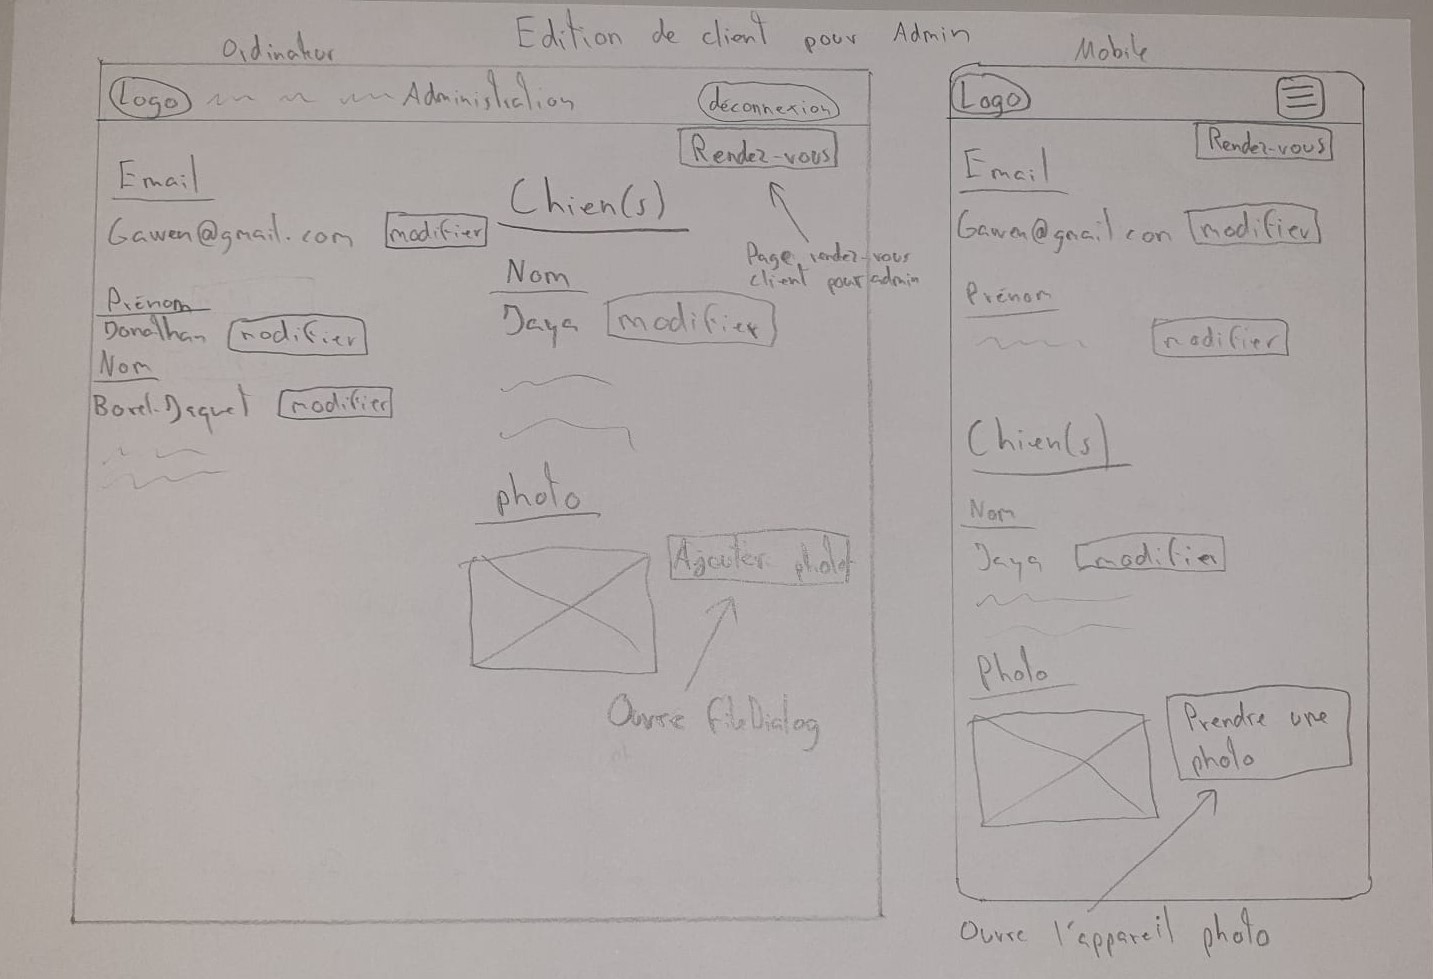 Edition de client pour Admin
Ordinateur
Logo
Administration
déconnexion
Rendez-vous
Page rendez-vous
client pour admin
Email
Gawen@gmail.com
modifier
Prénom
Donathan
modifier
Nom
Borel-Jaquet
modifier
Chien(s)
Nom
Jaya
modifier
photo
Ajouter photo
Ouvre fileDialog
Mobile
Logo
Rendez-vous
Email
Gawen@gmail con
modifier
Prénom
modifier
Chien(s)
Nom
Jaya
modifier
Photo
Prendre une
photo
Ouvre l'appareil photo